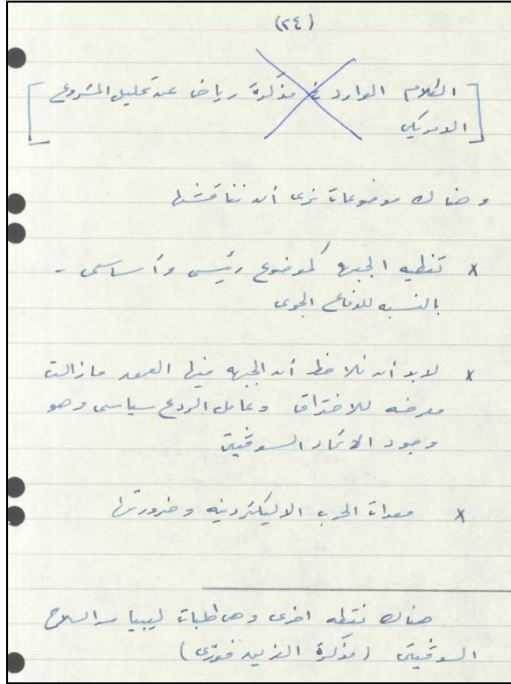 (٢٤)
[الكلام الوارد في مذكرة رياض عن تحليل المشروع
الامريكى]
وهناك موضوعات نرى أن نناقشها
x تغطيه الجبهه كموضوع رئيسى وأساسى -
بالنسبه للدفاع الجوى
x لابد أن نلاحظ أن الجبهه فيها العمق مازالت
معرضه للاختراق وعامل الردع سياسى وهو
وجود الاتحاد السوفيتى
x معدات الحرب الاليكترونيه وضرورتها
هناك نقطه اخرى وهى طلبات ليبيا من السلاح
السوفيتى (مذكرة الفريق فوزى)